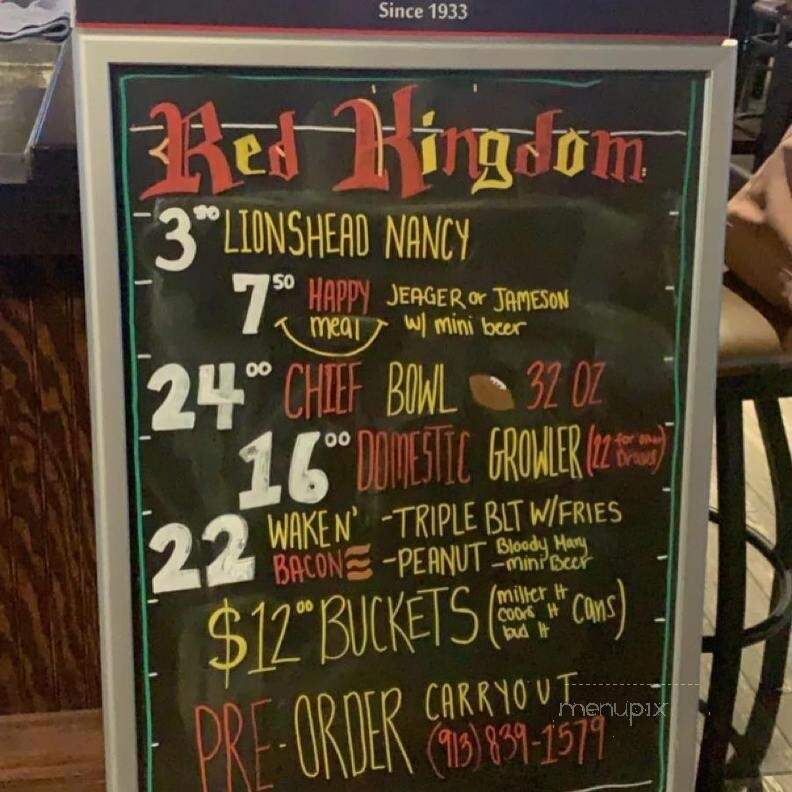 Since 1933
Red Kingdom
3.50 LIONSHEAD NANCY
7.50 HAPPY meal JEAGER or JAMESON
w/ mini beer
24.00 CHIEF BOWL 32 OZ
16.00 DOMESTIC GROWLER (22 for other Draws)
22 WAKE N' -TRIPLE BLT W/FRIES
BACON -PEANUT Bloody Mary
-mini Beer
$12.00 BUCKETS (miller lt
coors lt cans)
bud lt
PRE-ORDER CARRYOUT
(913) 839-1579
menupix